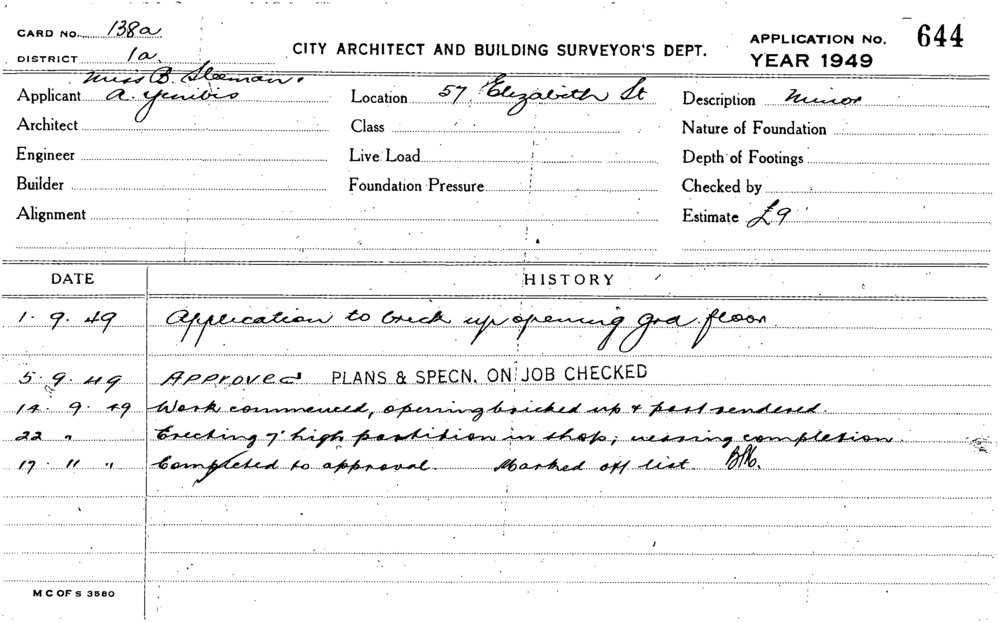 CARD NO. 138a
DISTRICT 1a
CITY ARCHITECT AND BUILDING SURVEYOR'S DEPT.
APPLICATION NO. 644
YEAR 1949
Miss B. Sleeman.
Applicant A.
Location 57, Elizabeth St
Description Minor
Architect
Class
Nature of Foundation
Engineer
Live Load
Depth of Footings
Builder
Foundation Pressure
Checked by
Alignment
Estimate £9
DATE HISTORY
1.9.49 Application to brick up opening grd. floor.
5.9.49 Approved PLANS & SPECN. ON JOB CHECKED
14.9.49 Work commenced, opening bricked up & part rendered.
22 " Erecting 7' high partition in shop; nearing completion.
17.11 " Completed to approval. Marked off list.
M C OF S 3580